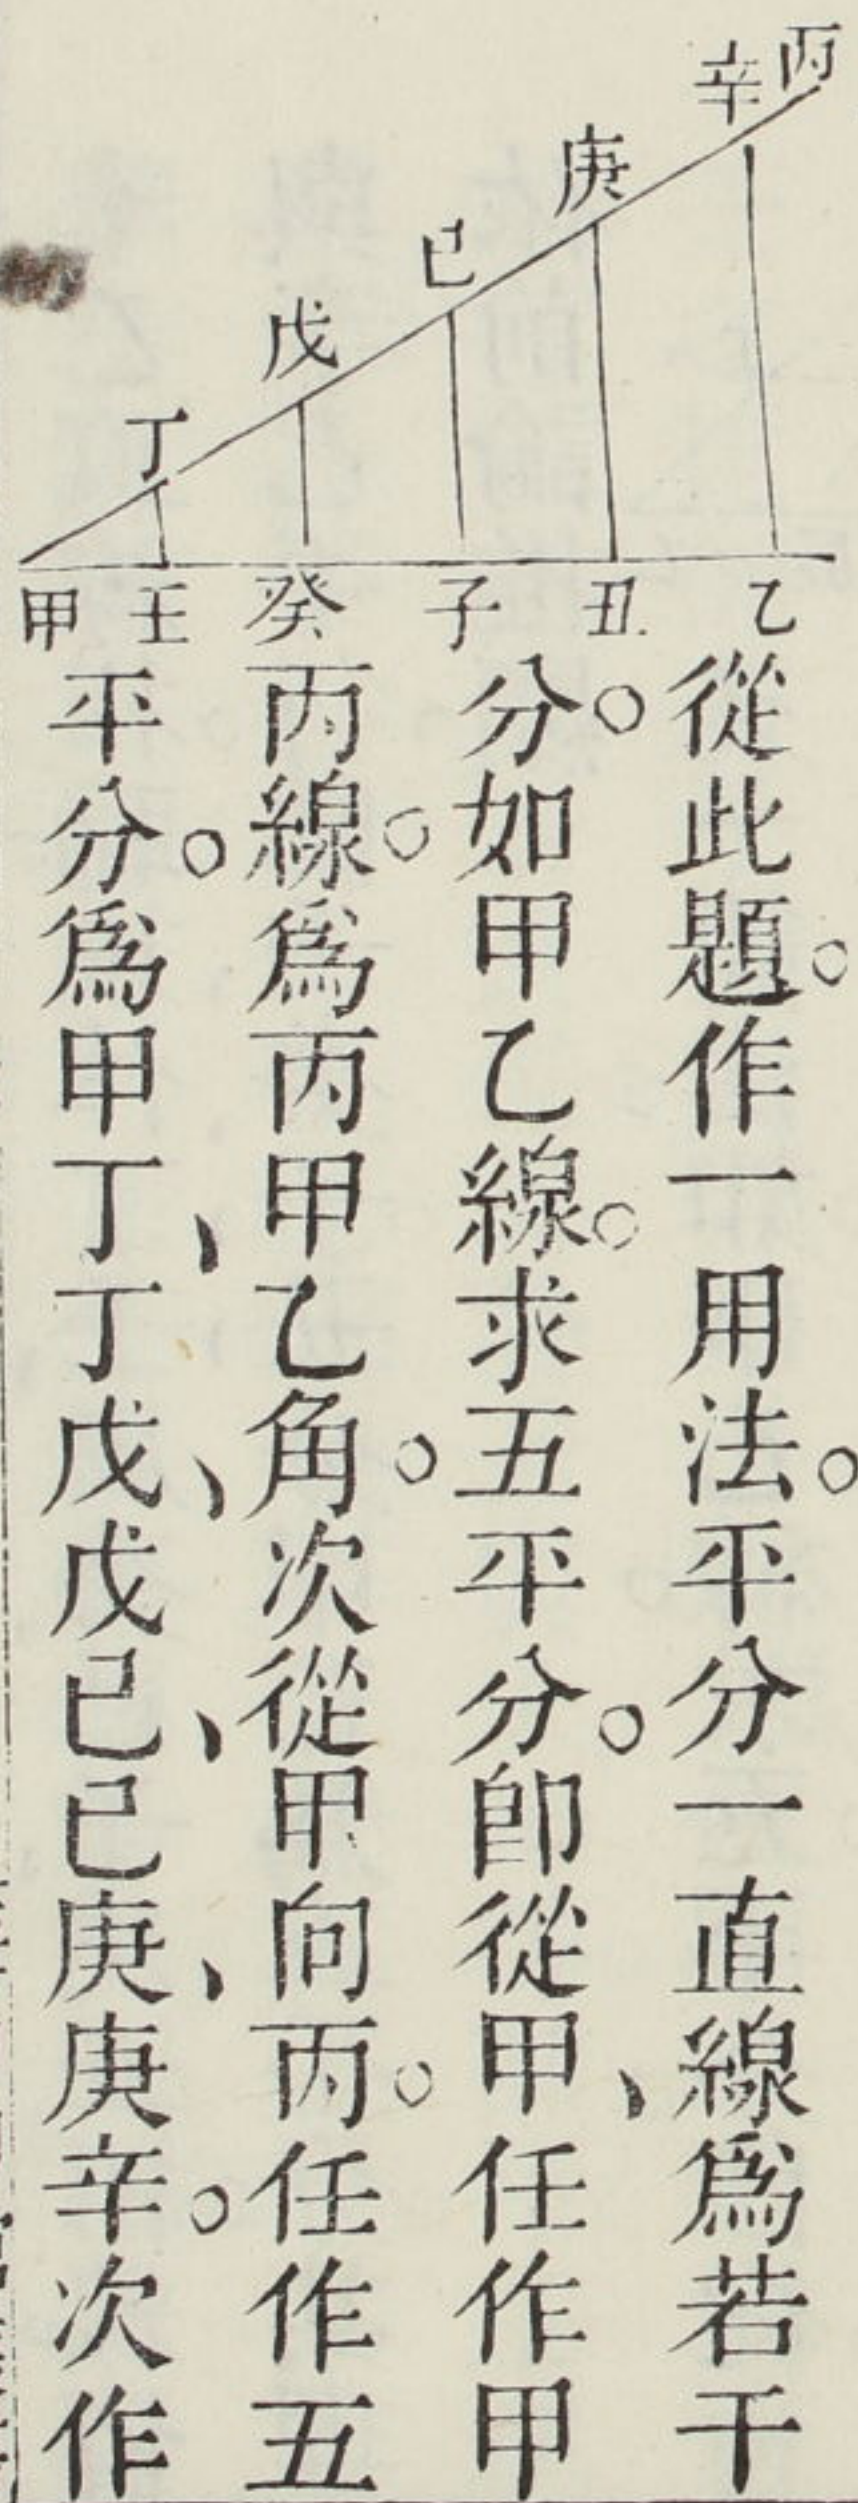 丙
辛
庚
已
戊
丁
甲 壬 癸 子 丑 乙
從此題。作一用法。平分一直線爲若干
分。如甲乙線。求五平分。卽從甲、任作甲
丙線。爲丙甲乙角。次從甲向丙。任作五
平分。爲甲丁、丁戊、戊已、已庚、庚辛。次作